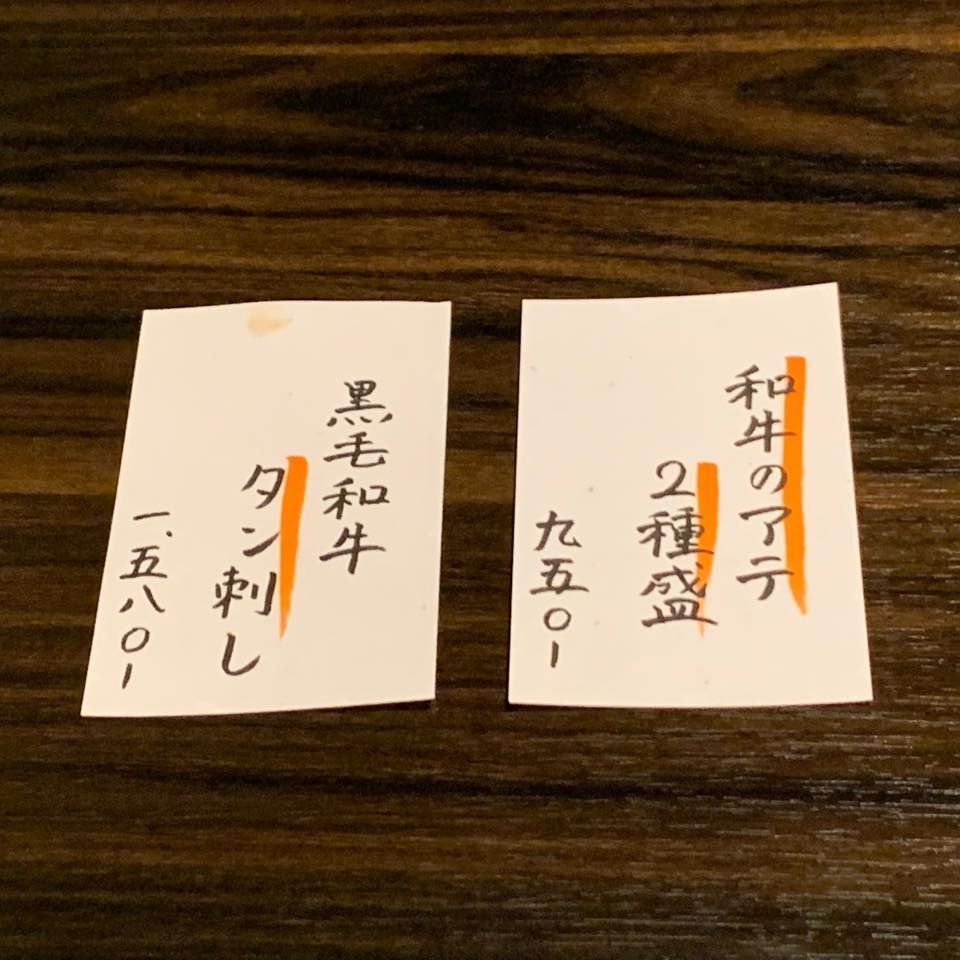 和牛のアテ
2種盛
九五〇-
黒毛和牛
タン刺し
一、五八〇-